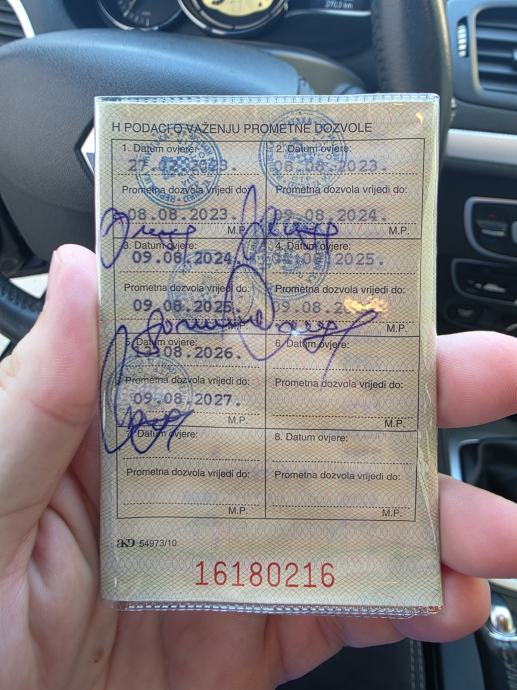 H PODACI O VAŽENJU PROMETNE DOZVOLE
1. Datum ovjere:
Prometna dozvola vrijedi do:
08.08.2023.
M.P.
2. Datum ovjere:
08.08.2023.
Prometna dozvola vrijedi do:
09.08.2024.
M.P.
3. Datum ovjere:
09.08.2024.
Prometna dozvola vrijedi do:
09.08.2025.
M.P.
4. Datum ovjere:
2025.
Prometna dozvola vrijedi do:
M.P.
5. Datum ovjere:
08.2026.
Prometna dozvola vrijedi do:
09.08.2027.
6. Datum ovjere:
Prometna dozvola vrijedi do:
M.P.
Datum ovjere:
Prometna dozvola vrijedi do:
M.P.
8. Datum ovjere:
Prometna dozvola vrijedi do:
M.P.
AKD 54973/10
16180216